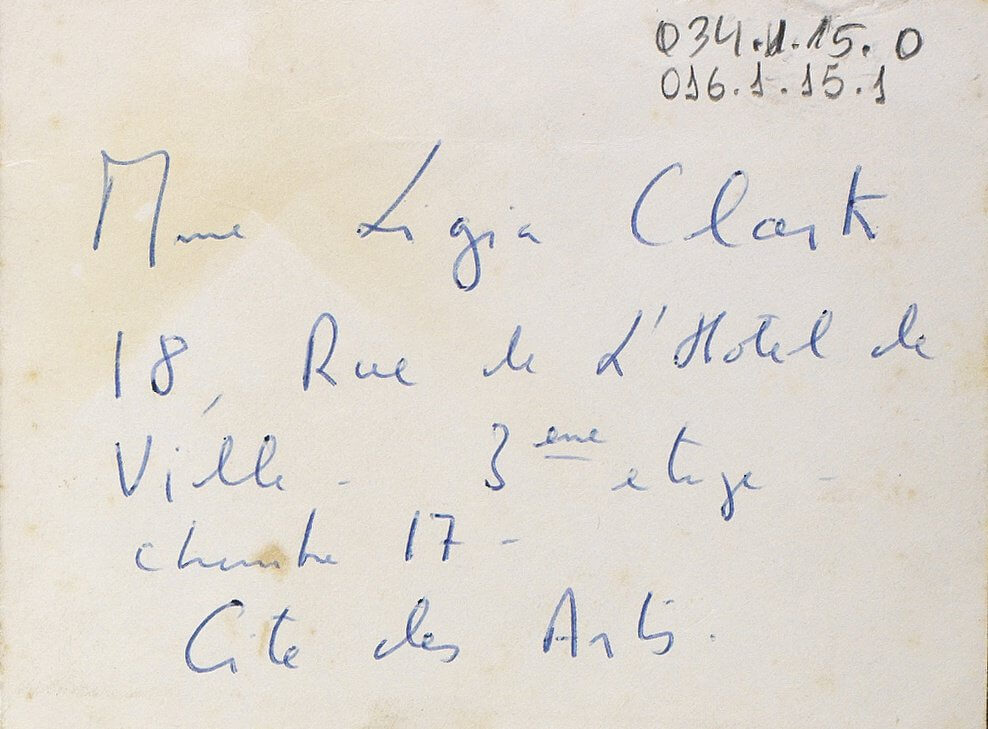 034.1.15.0
016.1.15.1
Mme Ligia Clark
18, Rue de L'Hotel de
Ville - 3eme etage -
chambre 17 -
Cite des Arts.